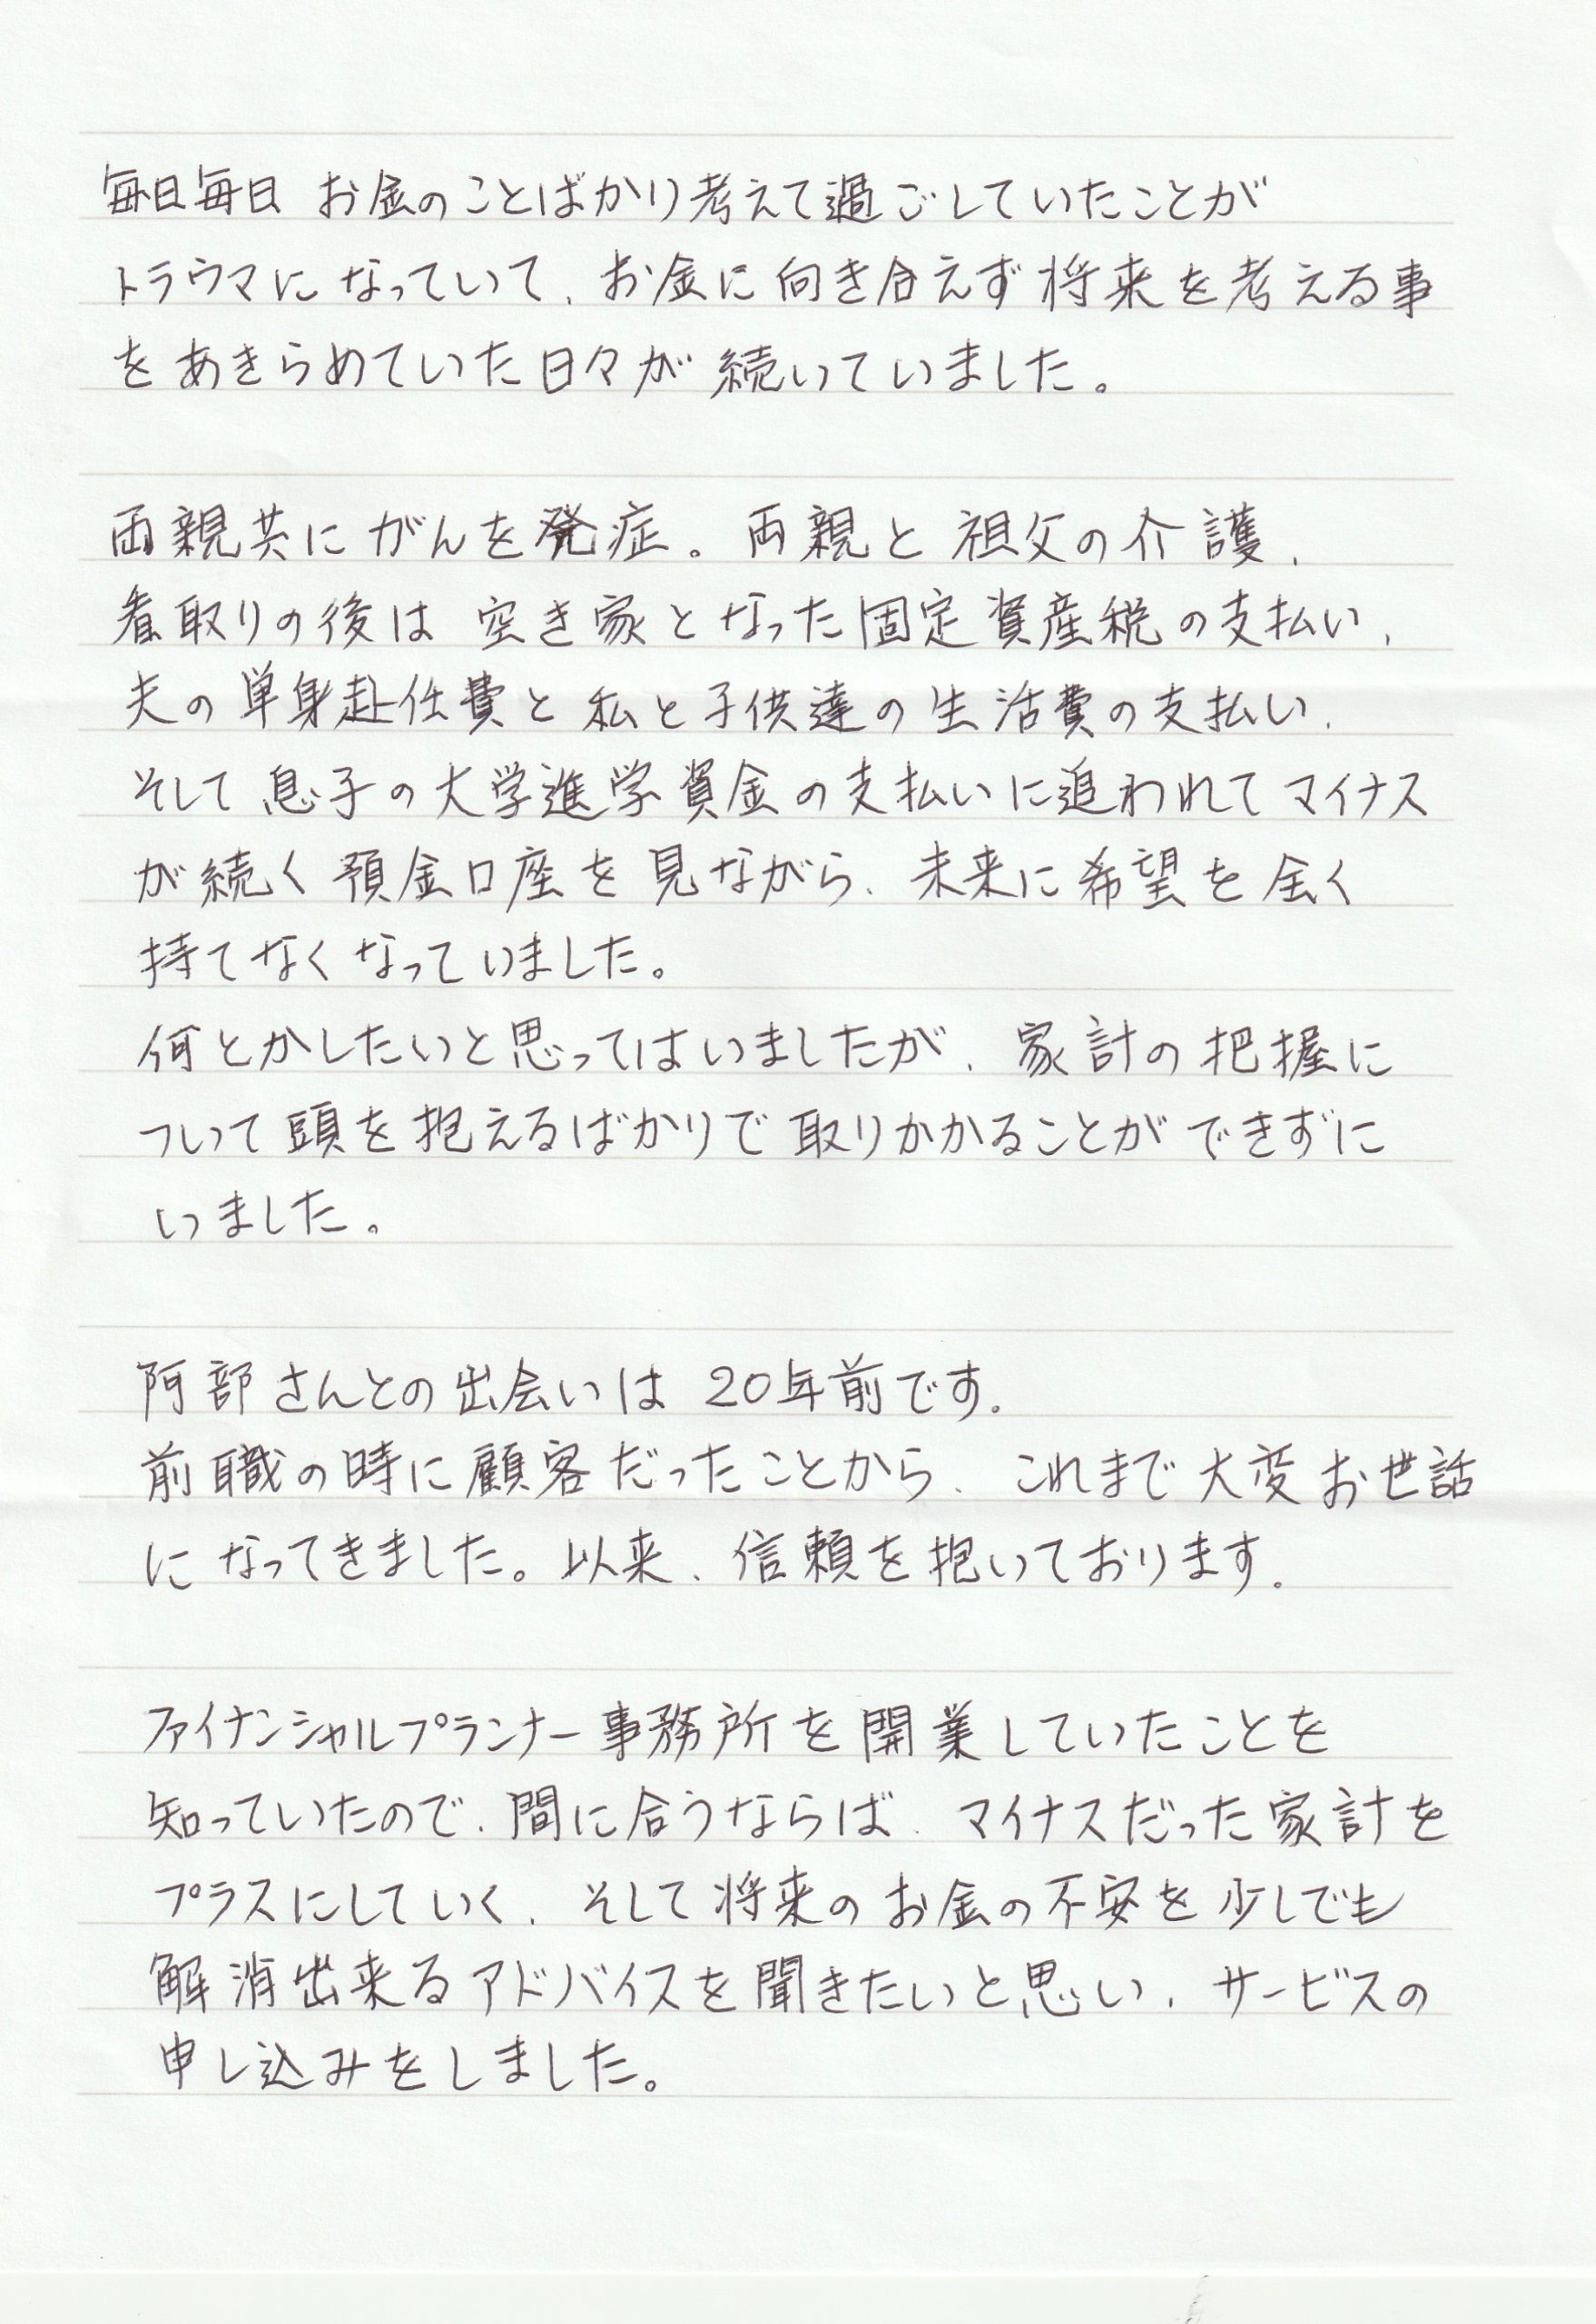 毎日毎日 お金のことばかり考えて過ごしていたことが
トラウマになっていて、お金に向き合えず将来を考える事
をあきらめていた日々が続いていました。
両親共にがんを発症。両親と祖父の介護、
看取りの後は空き家となった固定資産税の支払い、
夫の単身赴任費と私と子供達の生活費の支払い、
そして息子の大学進学資金の支払いに追われてマイナス
が続く預金口座を見ながら、未来に希望を全く
持てなくなっていました。
何とかしたいと思ってはいましたが、家計の把握に
ついて頭を抱えるばかりで取りかかることができずに
いました。
阿部さんとの出会いは 20年前です。
前職の時に顧客だったことから、これまで大変お世話
になってきました。以来、信頼を抱いております。
ファイナンシャルプランナー事務所を開業していたことを
知っていたので、間に合うならば、マイナスだった家計を
プラスにしていく、そして将来のお金の不安を少しでも
解消出来るアドバイスを聞きたいと思い、サービスの
申し込みをしました。